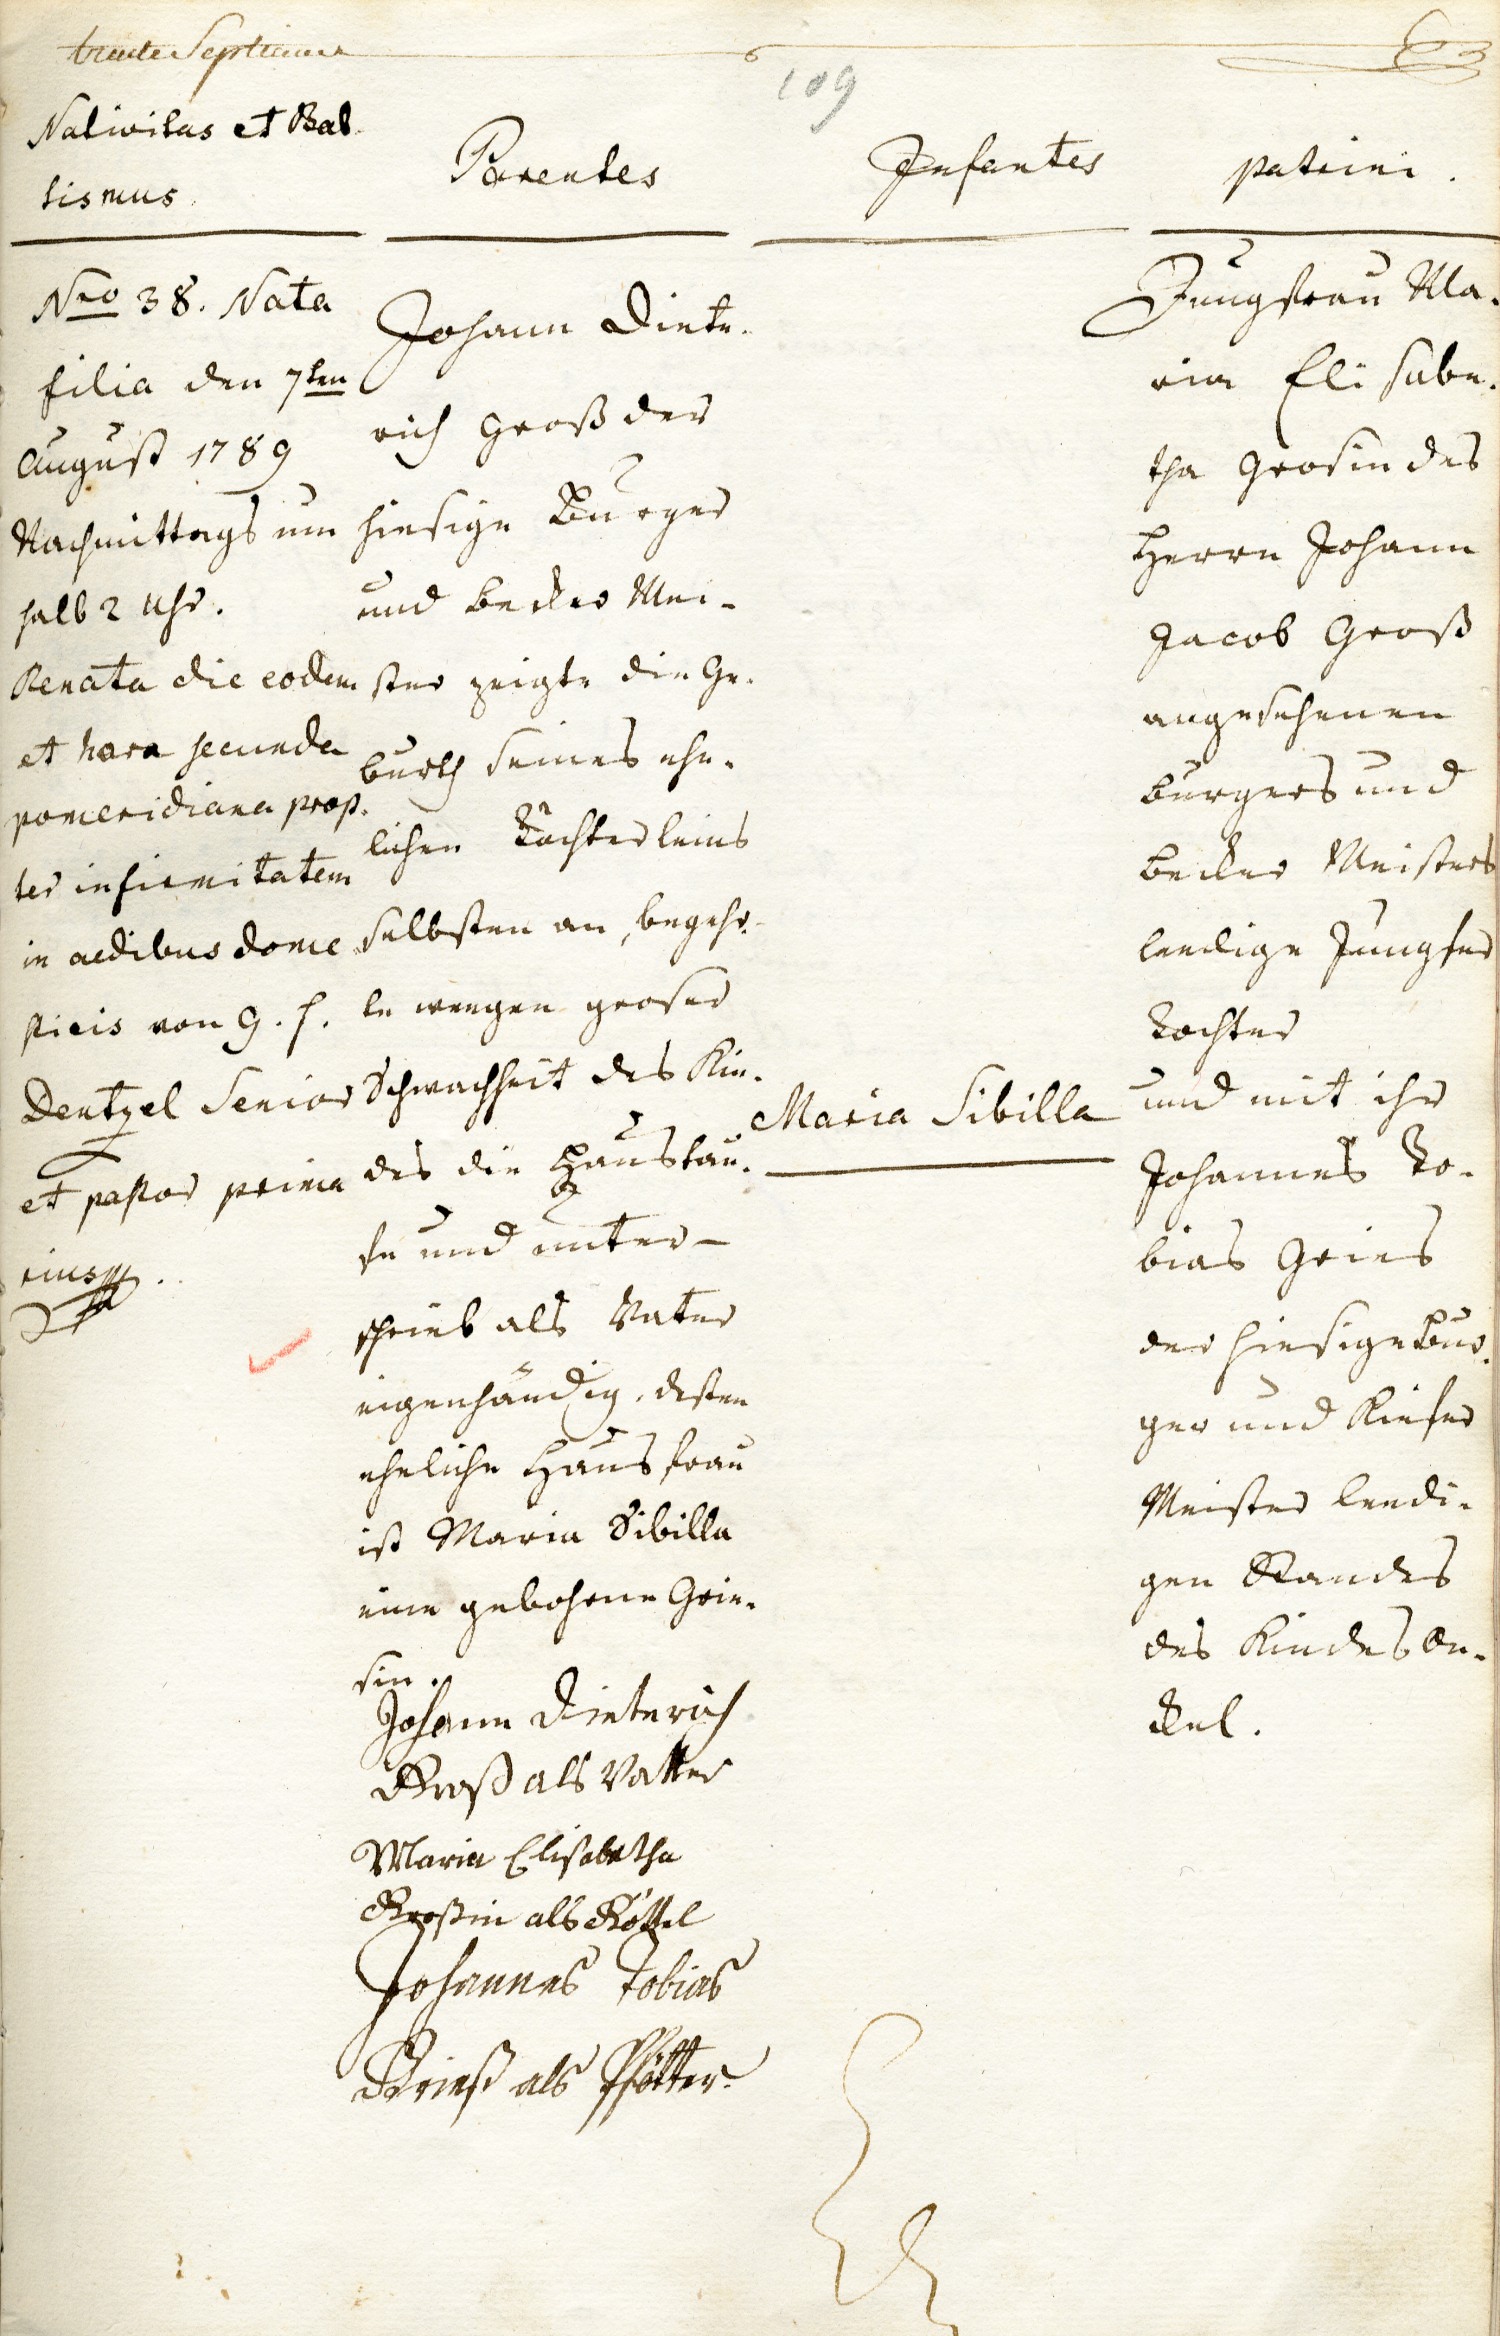 trente Septieme
109
Nativitas et Bab-
tismus.
Parentes
Infantes
patrini.
Nro 38. Nata
filia den 7ten
August 1789
Nachmittags um
halb 2 Uhr.
Renata die eodem
et hora secunda
pomeridiana prop-
ter infirmitatem
in aedibus dome
sticis von G. F.
Dentzel Senior
et pastor prima
rius.
Johann Diete-
rich Groß der
hiesige Burger
und Becker Mei-
ster zeigte die Ge-
burth seines ehe-
lichen Töchterleins
selbsten an, begehr-
te wegen groser
Schwachheit des Kin-
des die Haustau-
fe und unter-
schrieb als Vater
eigenhändig. dessen
eheliche Hausfrau
ist Maria Sibilla
eine gebohrne Grie-
sin.
Johann Dieterich
Groß als Vatter
Maria Elisabetha
Großin als Göttel
Johannes Tobias
Grieß als Pfötter.
Maria Sibilla
Jungfrau Ma-
ria Elisabe-
tha Grosin des
Herrn Johann
Jacob Groß
angesehenen
Burgers und
Becker Meisters
leedige Jungfer
Tochter
und mit ihr
Johannes To-
bias Gries
der hiesige Bur-
ger und Kiefer
Meister leedi-
gen Standes
des Kindes On-
ckel.